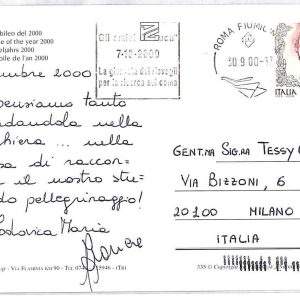 bileo del 2000
e of the year 2000
eljahrs 2000
bile de l'an 2000
Gli amici
7-10-2000
La giornata dei risvegli
per la ricerca sul coma
ROMA FIUMIC
30.9.00-17
ITALIA
embre 2000
pensiamo tanto
dandola nella
hiera ... nella
sa di raccon-
e il nostro stu-
do pellegrinaggio!
odovica Maria
GENT.MA SIG.RA TESSY
VIA BIZZONI, 6
20100 MILANO
ITALIA
VIA FLAMINIA KM 90 - Tel. 07 15948 - (TR)
535 © Copyright